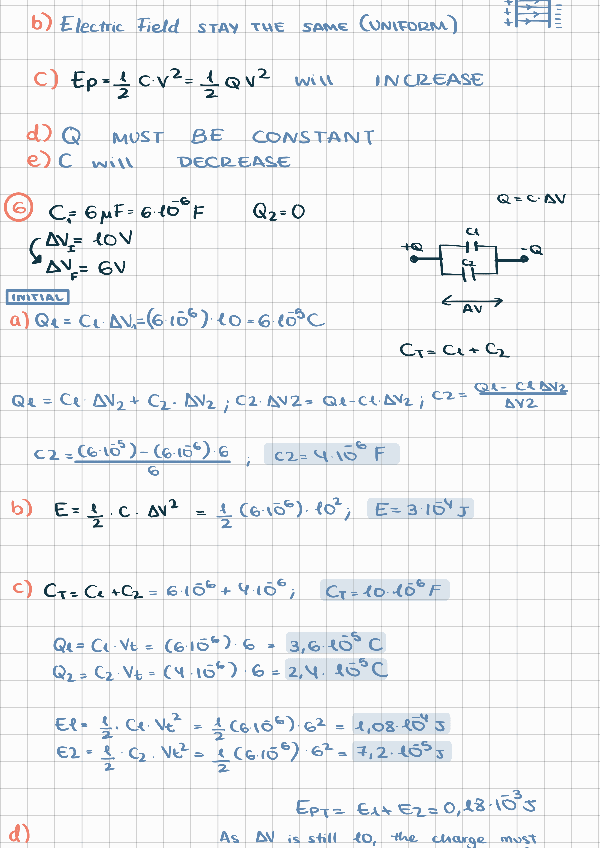 b) Electric Field STAY THE SAME (UNIFORM)
c) Ep = 1/2 C·V² = 1/2 QV² will INCREASE
d) Q MUST BE CONSTANT
e) C will DECREASE
6 C₁ = 6μF = 6·10⁻⁶ F Q₂ = 0 Q = C·ΔV
ΔV_I = 10V
ΔV_F = 6V
C1
+Q -Q
C2
ΔV
INITIAL
a) Q1 = C1·ΔV₁ = (6·10⁻⁶)·10 = 6·10⁻⁵ C
C_T = C1 + C2
Q1 = C1·ΔV₂ + C₂·ΔV₂ ; C2·ΔV2 = Q1 - C1·ΔV₂ ; C2 = (Q1 - C1 ΔV2)/ΔV2
C2 = ((6·10⁻⁵) - (6·10⁻⁶)·6)/6 ; C2 = 4·10⁻⁶ F
b) E = 1/2 · C · ΔV² = 1/2 (6·10⁻⁶)·10² ; E = 3·10⁻⁴ J
c) C_T = C1 + C2 = 6·10⁻⁶ + 4·10⁻⁶ ; C_T = 10·10⁻⁶ F
Q1 = C1·Vt = (6·10⁻⁶)·6 = 3,6·10⁻⁵ C
Q₂ = C₂·Vt = (4·10⁻⁶)·6 = 2,4·10⁻⁵ C
E1 = 1/2 · C1·Vt² = 1/2 (6·10⁻⁶)·6² = 1,08·10⁻⁴ J
E2 = 1/2 · C₂·Vt² = 1/2 (6·10⁻⁶)·6² = 7,2·10⁻⁵ J
E_PT = E1 + E2 = 0,18·10⁻³ J
d) As ΔV is still 10, the charge must